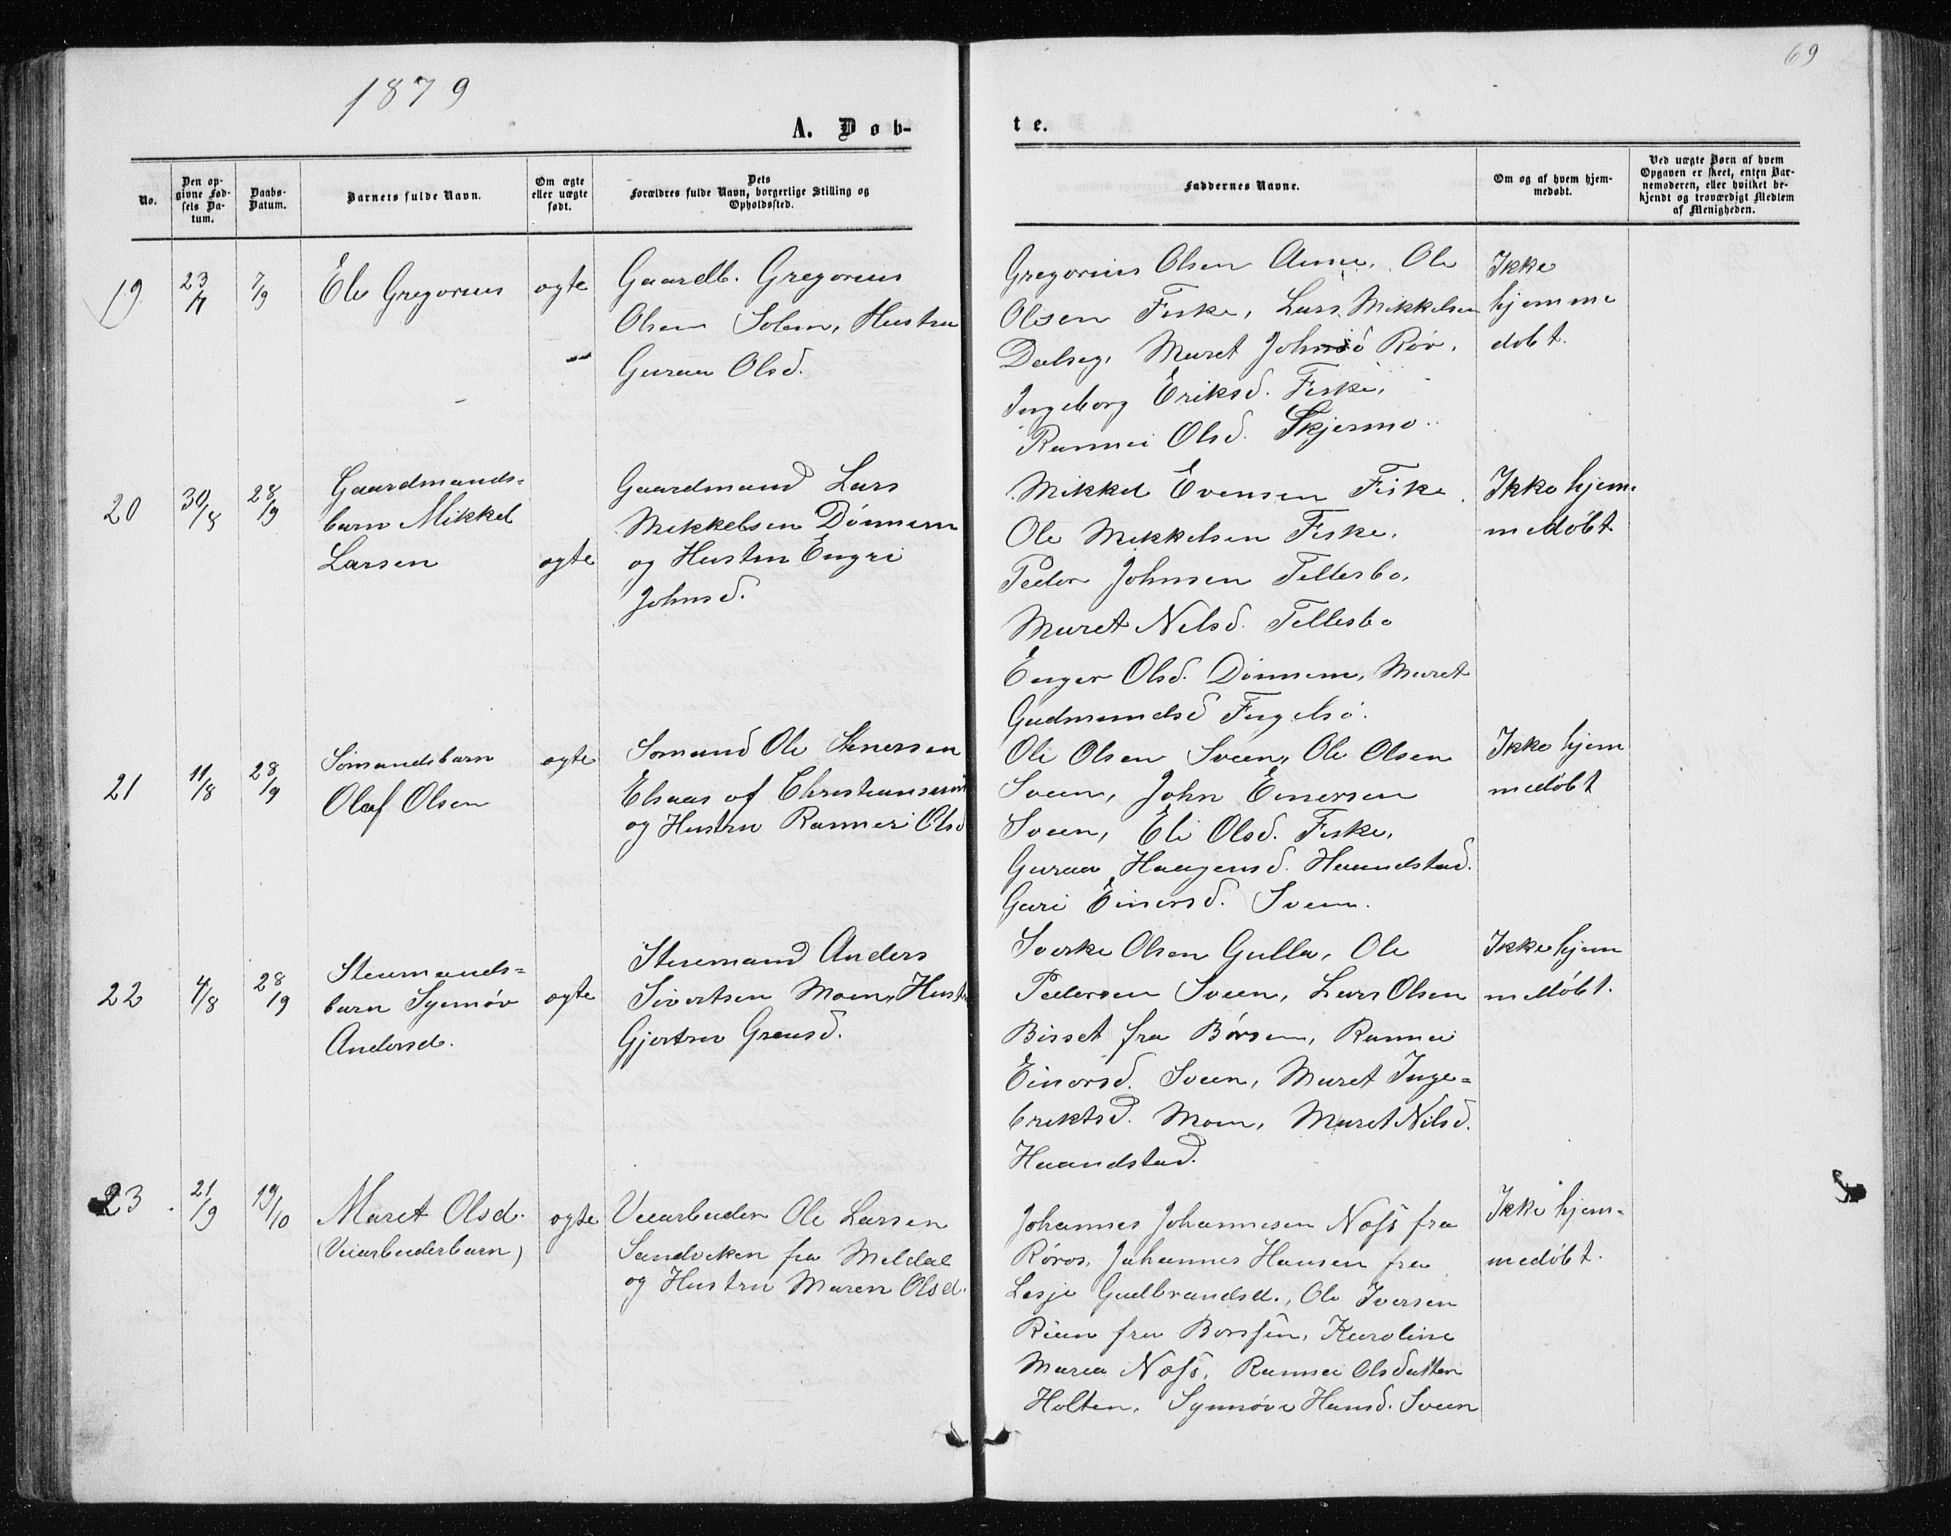 1879
69
A. Døb-
te.
No.
Den op-
givne Fød-
sels Da-
tum.
Daabs-
Datum.
Barnets fulde Navn.
Om ægte
eller uægte
født.
Dets
Forældres fulde Navn, borgerlige Stilling og
Opholdssted.
Faddernes Navne.
Om og af hvem hjem-
medøbt.
Ved uægte Børn af hvem
Opgaven er skeet, enten Bar-
nemoderen, eller hvilket be-
kjendt og troværdigt Medlem
af Menigheden.
19
23/7
7/9
Gregorius
ogte
Gaardb. Gregorius
Olsen Solem, Hustru
Guraa Olsd.
Gregorius Olsen Aune, Ole
Olsen Fiske, Lars Mikkelsen
Dalseg, Maret Røv,
Ingeborg Eriksd. Fiske,
Rannei Olsd. Skjermo.
Ikke
hjemme
dobt.
20
30/8
28/9
Gaardmands-
barn Mikkel
Larsen
ogte
Gaardmand Lars
Mikkelsen Dønnem
og Hustru Engri
Johnsd.
Mikkel Evensen Fiske
Ole Mikkelsen Fiske,
Peder Johnsen Tellesbo,
Maret Nilsd. Tellesbo
Enger Olsd. Dønnem, Maret
Gudmundsd
Ikke hjem-
medøbt
21
11/8
28/9
Sömandsbarn
Olaf Olsen
ogte
Somand Ole Stenersen
Elsaas af Christiansund
og Hustru Rannei Olsd
Ole Olsen Sveen, Ole Olsen
Sveen, John Einersen
Sveen, Eli Olsd. Fiske,
Guraa Haagensd. Haandstad.
Guri Einersd. Sveen.
Ikke hjem
medøbt
22
4/8
28/9
barn Synnøv
Andersd.
ogte
Anders
Sivertsen Moen, Hust
Gjertru
Sverke Olsen Gulla, Ole
Pedersen Sveen, Lars Olsen
Bisset fra Børsen, Rannei
Einersd. Sveen, Maret Inge-
briktsd. Moen, Maret Nilsd.
Haandstad.
Ikke hjem
medøbt.
23
21/9
19/10
Maret Olsd.
(Veiarbeiderbarn)
ogte
Veiarbeider Ole Larsen
Sandviken fra Meldal
og Hustru Maren Olsd.
Johannes Johannesen Noss fra
Røros, Johannes Hansen fra
Lesje Gudbrandsd., Ole Iversen
fra Børssen, Karoline
Maria Noss, Rannei Olsdatter
Holten, Synnøve Hansd. Sveen
Ikke hjem-
medøbt.